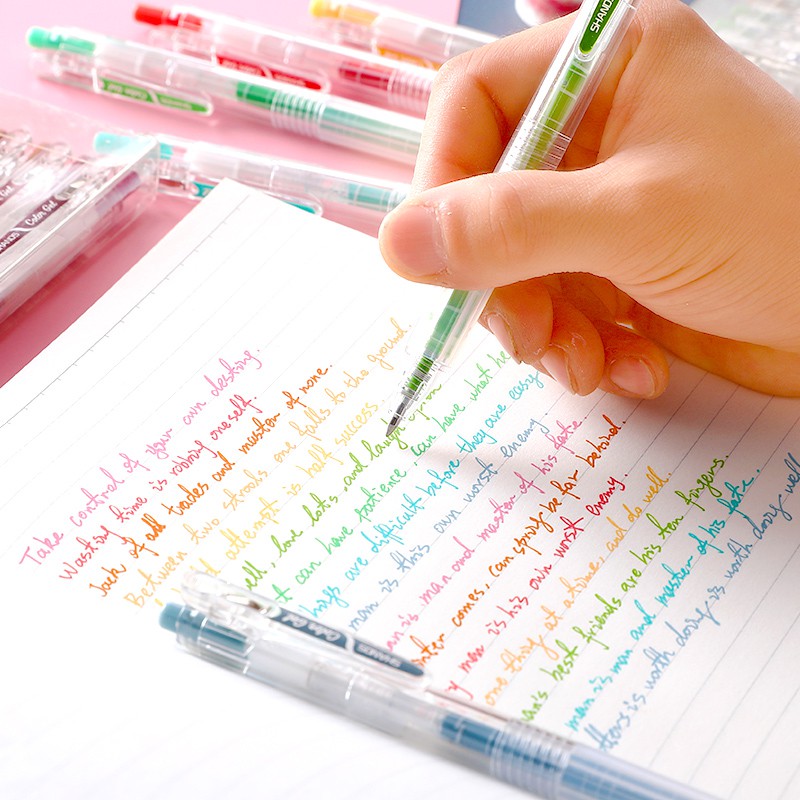 Take control of your own destiny.
Wasting time is robbing oneself.
Jack of all trades and master of none.
Between two strools one falls to the ground.
attempt is half success.
ell, love lots, and laugh
t can have patience, can have what he
hings are difficult before they are easy
man is this own worst enemy.
an is man and master of his fate.
nter comes, can spring be far behind.
y man is his own worst enemy.
one thing at a time, and do well.
an's best friends are his ten fingers.
man is man and master of his fate.
tters is worth doing is worth doing well
SHANDS
Color Gel SHANDS
Color Gel
Color Gel
SHANDS